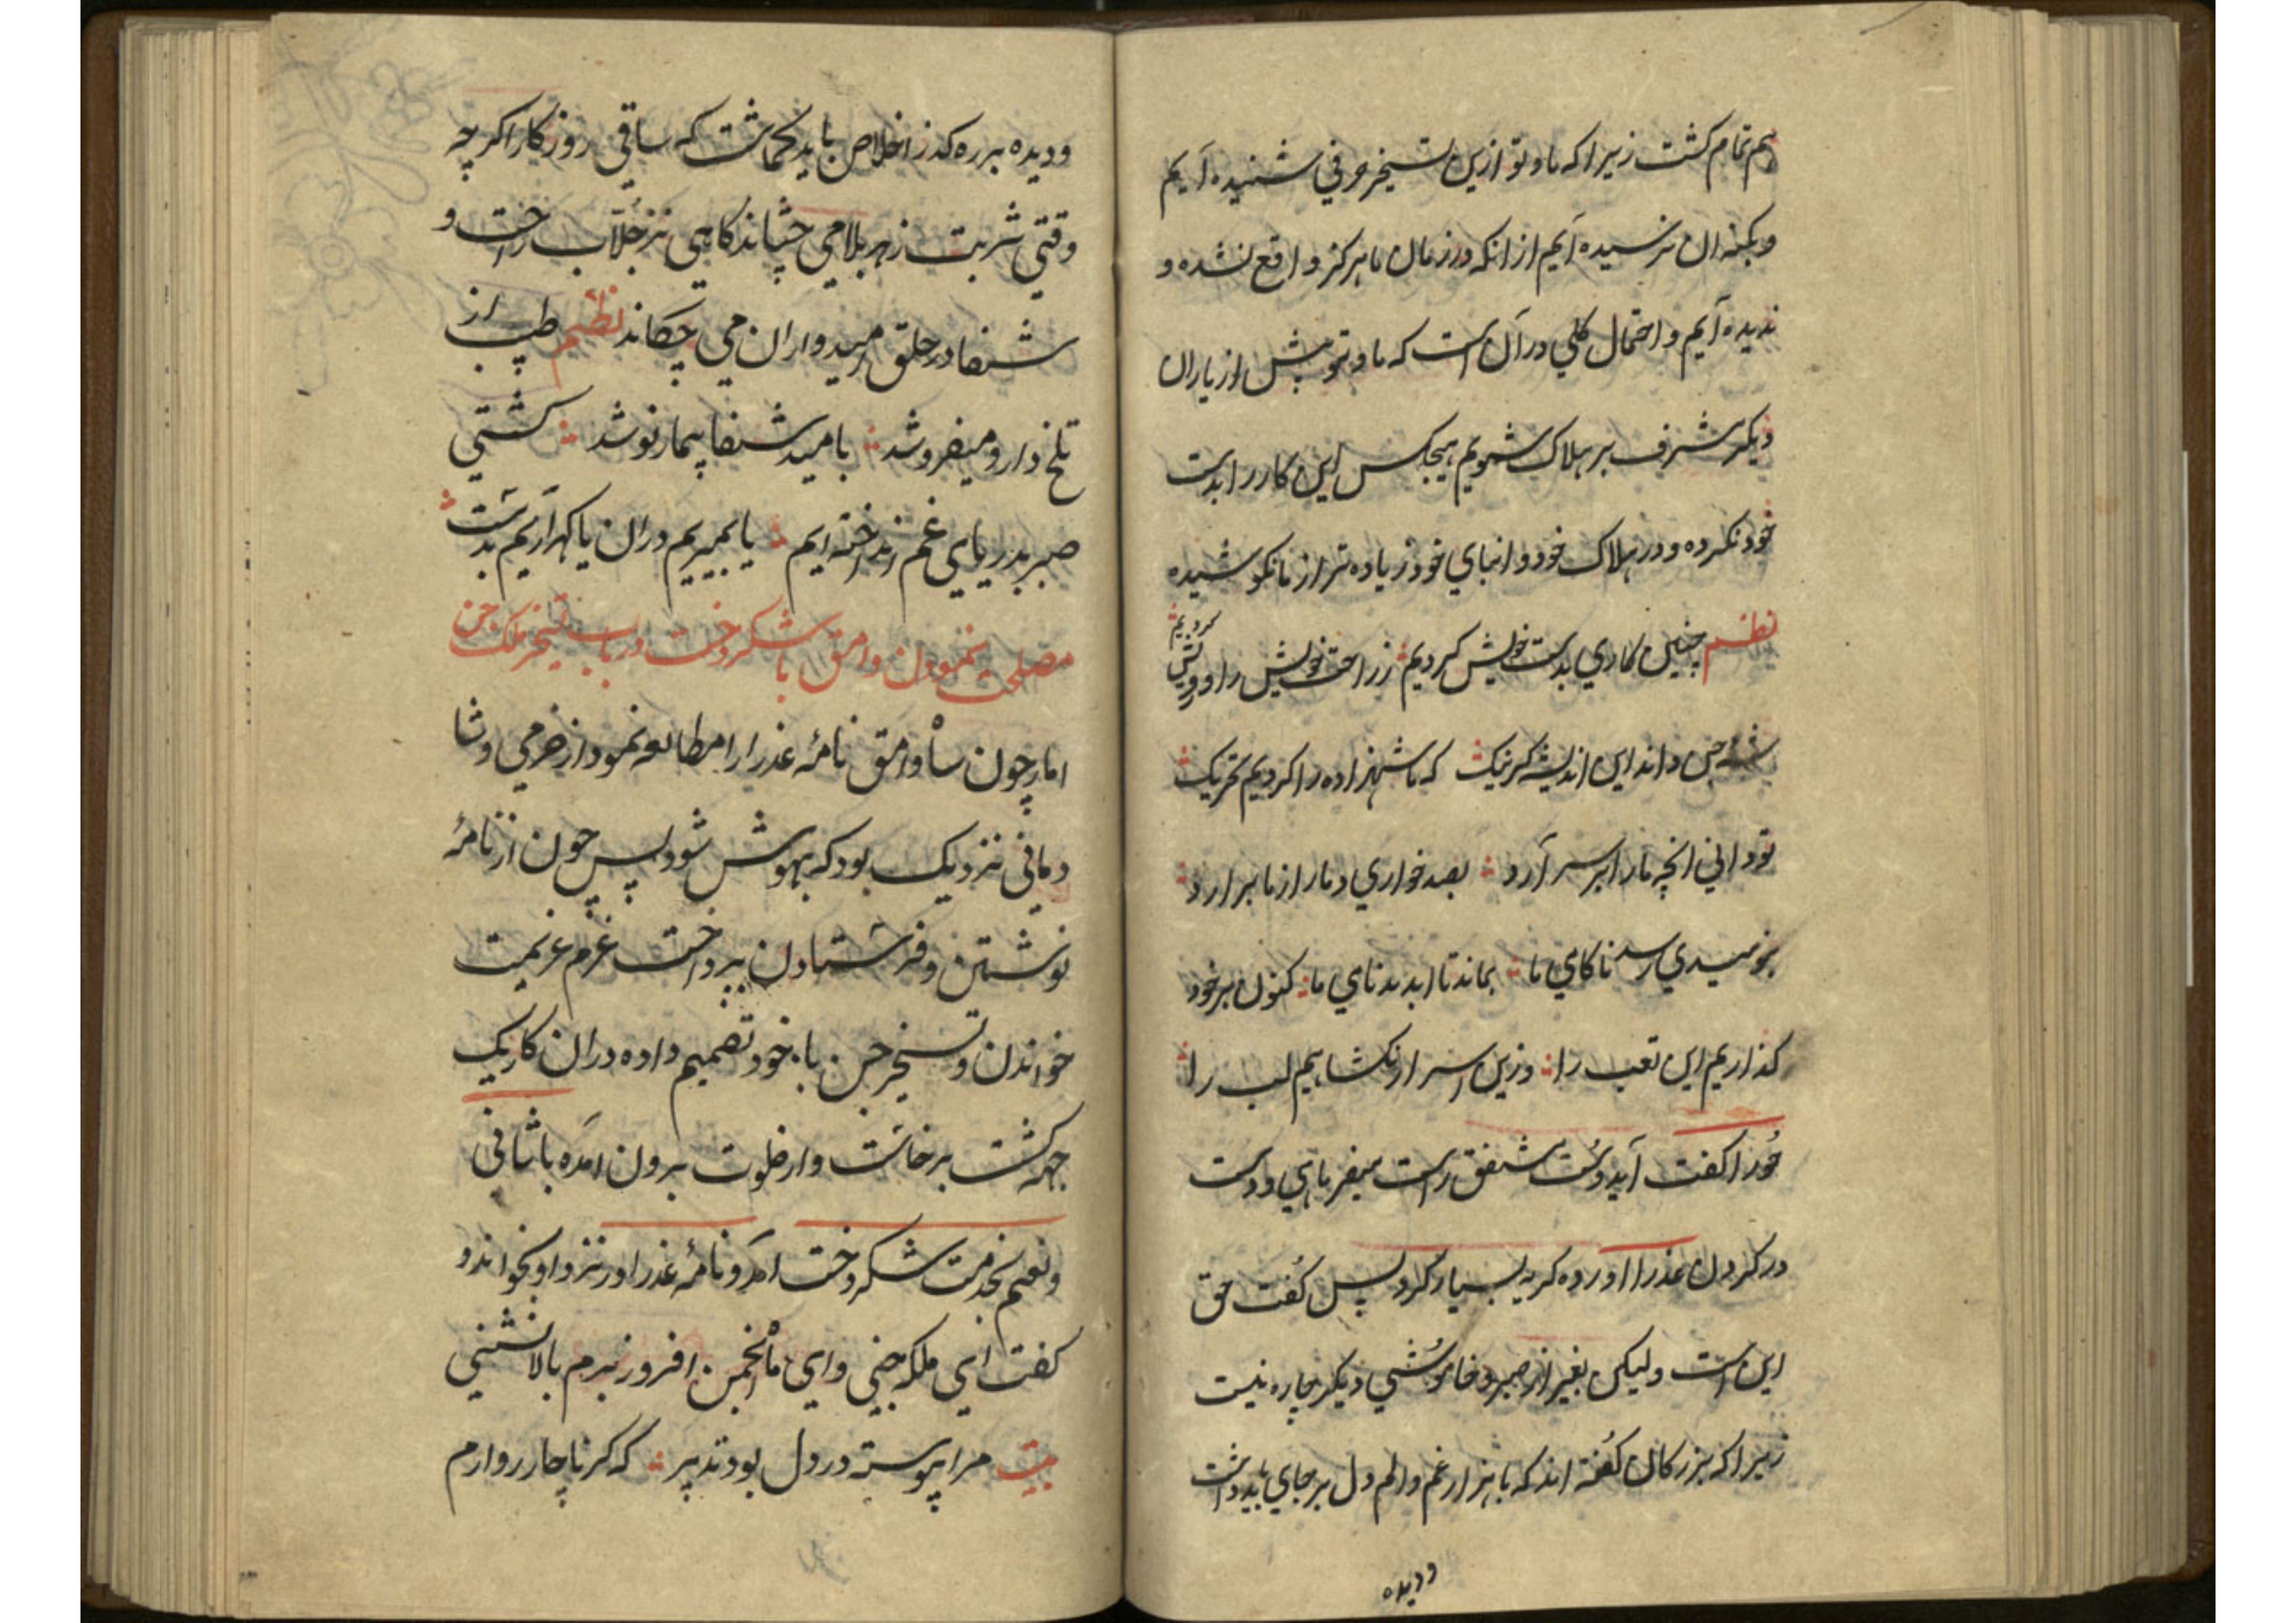 هم تمام کشت زیرا که ما و تو ازین تسخیر حرفی شنیده‌ آیم
و بکنه ان نرسیده آیم از انکه در زمان ما هرکز واقع نشده و
ندیده آیم و احتمال کلی در آن است که ما و تو پیش از یاران
دیکر مشرف بر هلاک شویم هیچکس این کار را بدست
خود نکرده و در هلاک خود و ابنای خود زیاده تر از ما نکوشیده
نظم چنین کاری بدست خویش کردیم ز راحت خویش را درویش
کردیم
شه جن داند این اندیشه کر نیک که ما شهزاده را کردیم تحریک
تو دانی انچه ما را بر سر آرد بصد خواری دمار از ما برارد
بنومیدی رسد ناکامی ما بماند تا ابد بدنامی ما کنون بر خود
کذاریم این تعب را وزین اسرار نکشاییم لب را
حورا کفت آیدوست مشفق راست میفرمایی و دست
در کردن عذرا اورده کریه بسیار کرد پس کفت حق
این است ولیکن بغیر از صبر و خاموشی دیکر چاره نیست
زیرا که بزرکان کفته اند که با هزار غم و الم دل بر جای باید داشت
ودیده
ودیده بر رهکذر اخلاص باید کماشت که ساقی روزکار اکرچه
وقتی شربت زهر بلا می چشاند کاهی نیز جلاب راحت و
شفا در حلق امیدواران می چکاند نظم طبیب ار
تلخ دارو میفروشد بامید شفا بیمار نوشد کشتی
صبر بدریای غم انداخته ایم یا بمیریم دران یا کهر آریم بدست
مصلحت نمودن وامق با شکردخت در باب تسخیر ملک جن
اما چون شاه وامق نامه عذرا را مطالعه نمود از خرمی و شا
دمانی نزدیک بود که بیهوش شود پس چون از نامه
نوشتن و فرستادن پرداخت عزم عزیمت
خواندن و تسخیر جن با خود تصمیم داده دران کار یک
جهه کشت برخاست و از خلوت برون امده با شافی
و نعیم بخدمت شکردخت امد و نامه عذرا در نزد او بخواند و
کفت ای ملکه جنی وای ماه انجمن افروز بزم بالانشینی
بیت مرا پیوسته در دل بود تدبیر که کر ناچار روارم